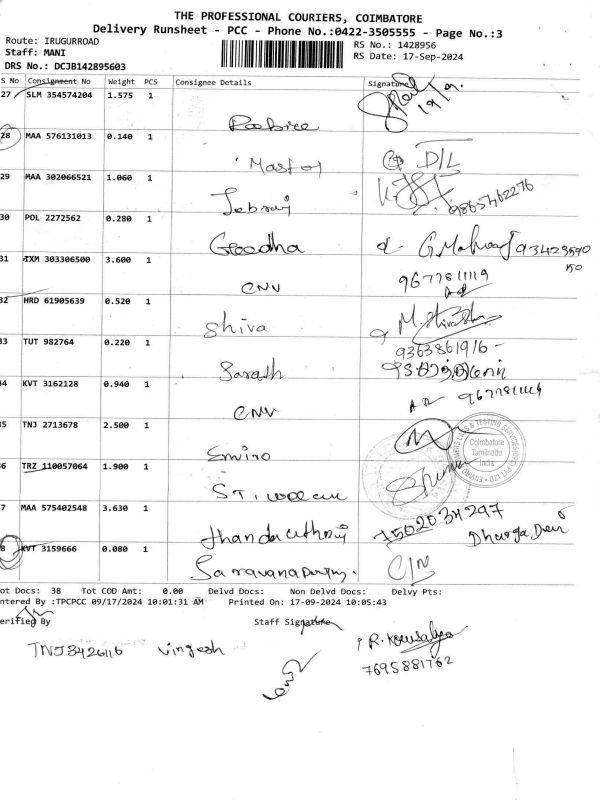 THE PROFESSIONAL COURIERS, COIMBATORE
Delivery Runsheet - PCC - Phone No.:0422-3505555 - Page No.:3
Route: IRUGURROAD
Staff: MANI
DRS No.: DCJB142895603
RS No.: 1428956
RS Date: 17-Sep-2024
S No Consignment No Weight PCS Consignee Details Signature
27 SLM 354574204 1.575 1
28 MAA 576131013 0.140 1
D/L
29 MAA 302066521 1.060 1
Jebraj 9865462276
30 POL 2272562 0.280 1
Geodha
31 IXM 303306500 3.600 1
CNV 9677811119
32 HRD 61905639 0.520 1
Shiva M.
33 TUT 982764 0.220 1 9363861916
Sarath
34 KVT 3162128 0.940 1
CNV
35 TNJ 2713678 2.500 1
Enviro
Coimbatore
Tamilnadu
India
36 TRZ 110057064 1.900 1
37 MAA 575402548 3.630 1
7502034297
38 KVT 3159666 0.080 1
Tot Docs: 38 Tot COD Amt: 0.00 Delvd Docs: Non Delvd Docs: Delvy Pts:
Entered By :TPCPCC 09/17/2024 10:01:31 AM Printed On: 17-09-2024 10:05:43
Verified By Staff Signature
TNJ8426116 Vingesh R. Kousalya
7695881762